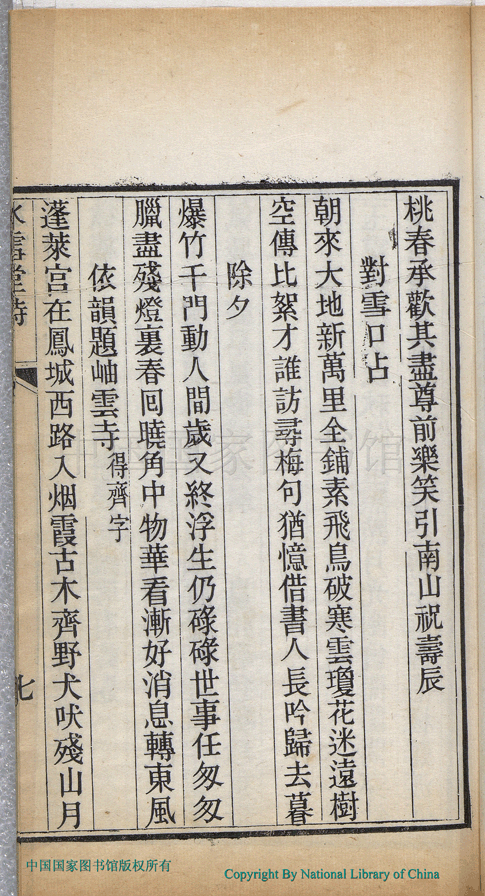 桃春承歡其盡尊前樂笑引南山祝壽辰
對雪口占
朝來大地新萬里全鋪素飛鳥破寒雲瓊花迷遠樹
空傳比絮才誰訪尋梅句猶憶借書人長吟歸去暮
除夕
爆竹千門動人間歲又終浮生仍碌碌世事任匆匆
臘盡殘燈裏春回曉角中物華看漸好消息轉東風
依韻題岫雲寺得齊字
蓬萊宮在鳳城西路入烟霞古木齊野犬吠殘山月
冰雪堂詩
七
中国国家图书馆
中国国家图书馆版权所有
Copyright By National Library of China